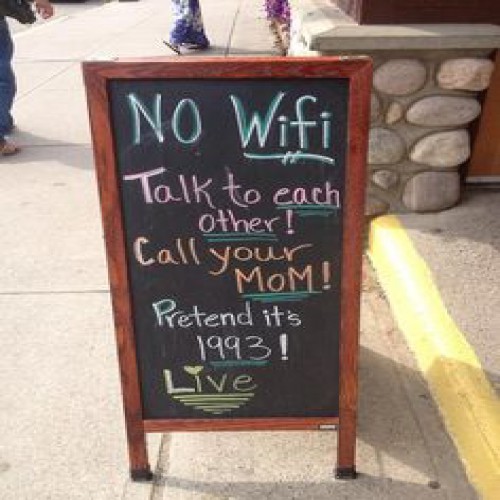 NO Wifi
Talk to each
other!
Call your
MOM!
Pretend it's
1993!
Live